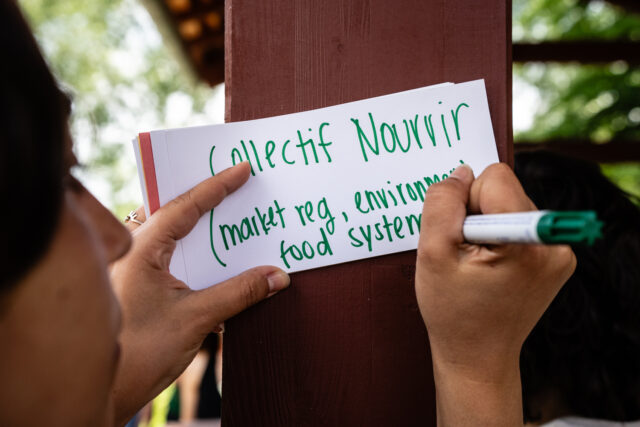 Collectif Nourrir
(market reg, environment
food system